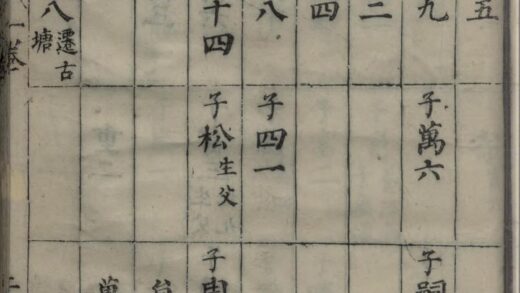 五
九
二
四
八
十四
八遷古塘
子萬六
子四一
子松生父
子
子
萬